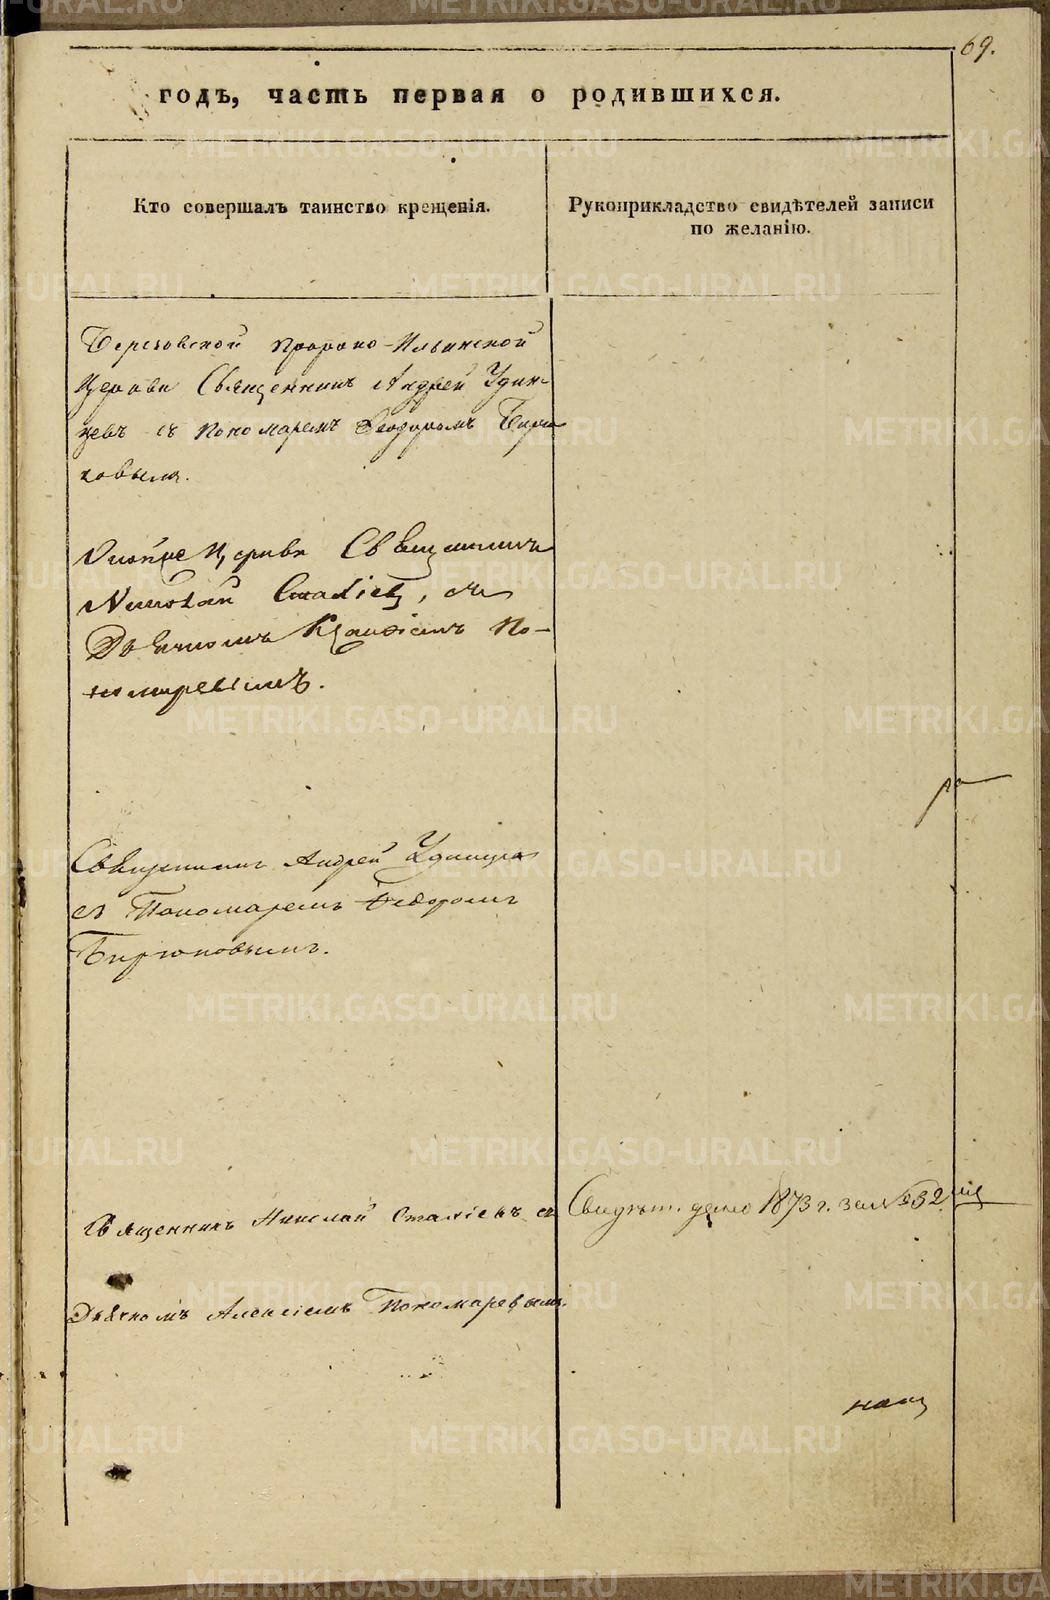 69.
годъ, часть первая о родившихся.
Кто совершалъ таинство крещенія.
Рукоприкладство свидѣтелей записи
по желанію.
Березовской Пророко-Ильинской
Церкви Священникъ Андрей Удин-
цевъ съ Пономаремъ Ѳеодоромъ Бирю
ковымъ.
Церкви Священникъ
Николай Стахіевъ, съ
Дьячкомъ По-
номаревымъ.
Священникъ Андрей Удинцевъ
съ Пономаремъ Ѳедоромъ
Бирюковымъ.
Священникъ Николай Стахіевъ съ
Свидѣт. дано 1873 г. за № 532
Дьячкомъ Алексіемъ Пономаревымъ.
METRIKI.GASO-URAL.RU